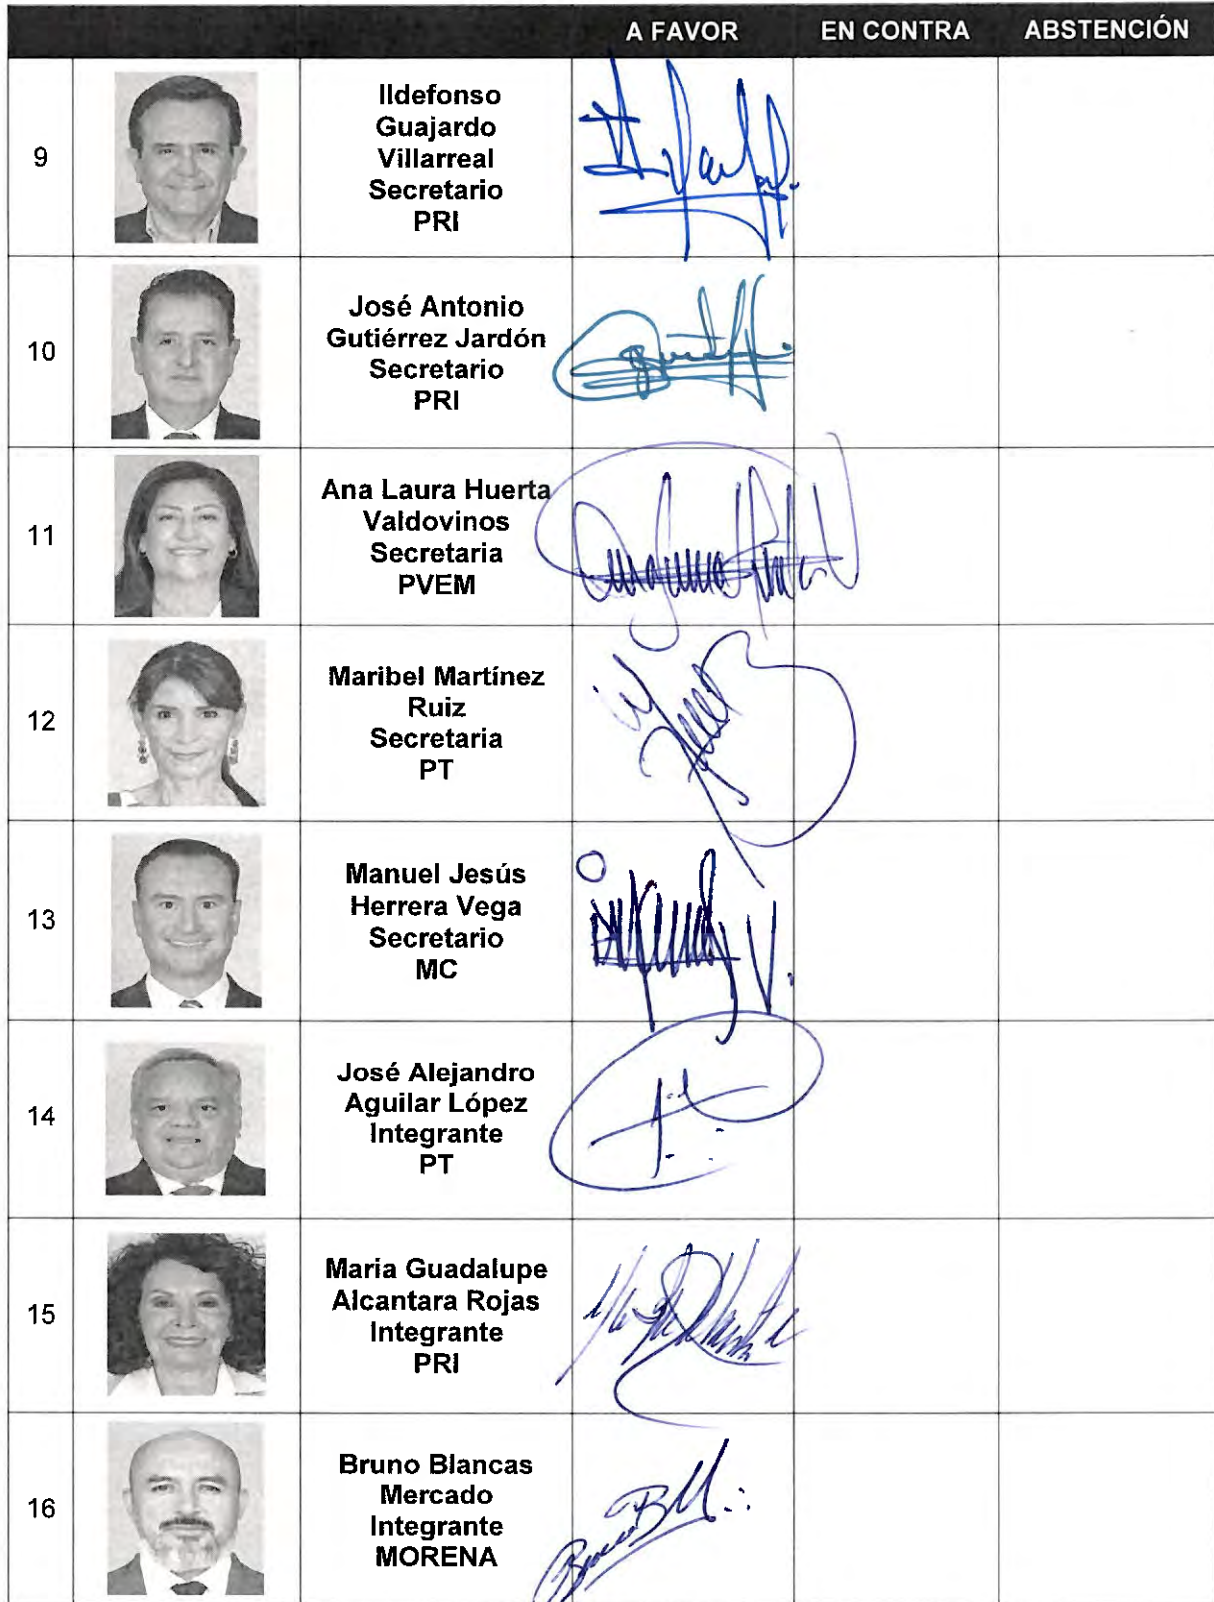 A FAVOR EN CONTRA ABSTENCIÓN
9
Ildefonso
Guajardo
Villarreal
Secretario
PRI
10
José Antonio
Gutiérrez Jardón
Secretario
PRI
11
Ana Laura Huerta
Valdovinos
Secretaria
PVEM
12
Maribel Martínez
Ruiz
Secretaria
PT
13
Manuel Jesús
Herrera Vega
Secretario
MC
14
José Alejandro
Aguilar López
Integrante
PT
15
Maria Guadalupe
Alcantara Rojas
Integrante
PRI
16
Bruno Blancas
Mercado
Integrante
MORENA